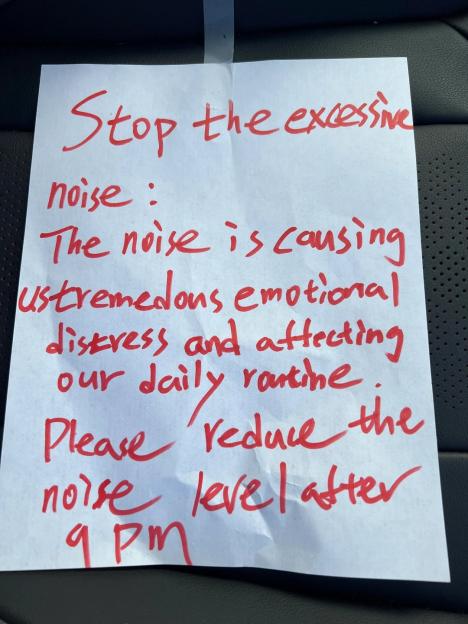 Stop the excessive
noise :
The noise is causing
us tremedous emotional
distress and affecting
our daily routine.
Please reduce the
noise level after
9 PM